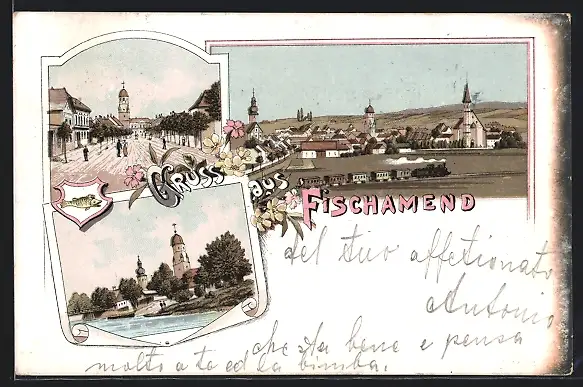 Gruss aus
Fischamend
del tuo affetionato
Antonio
che sta bene e pensa
molto a te ed la bimba.